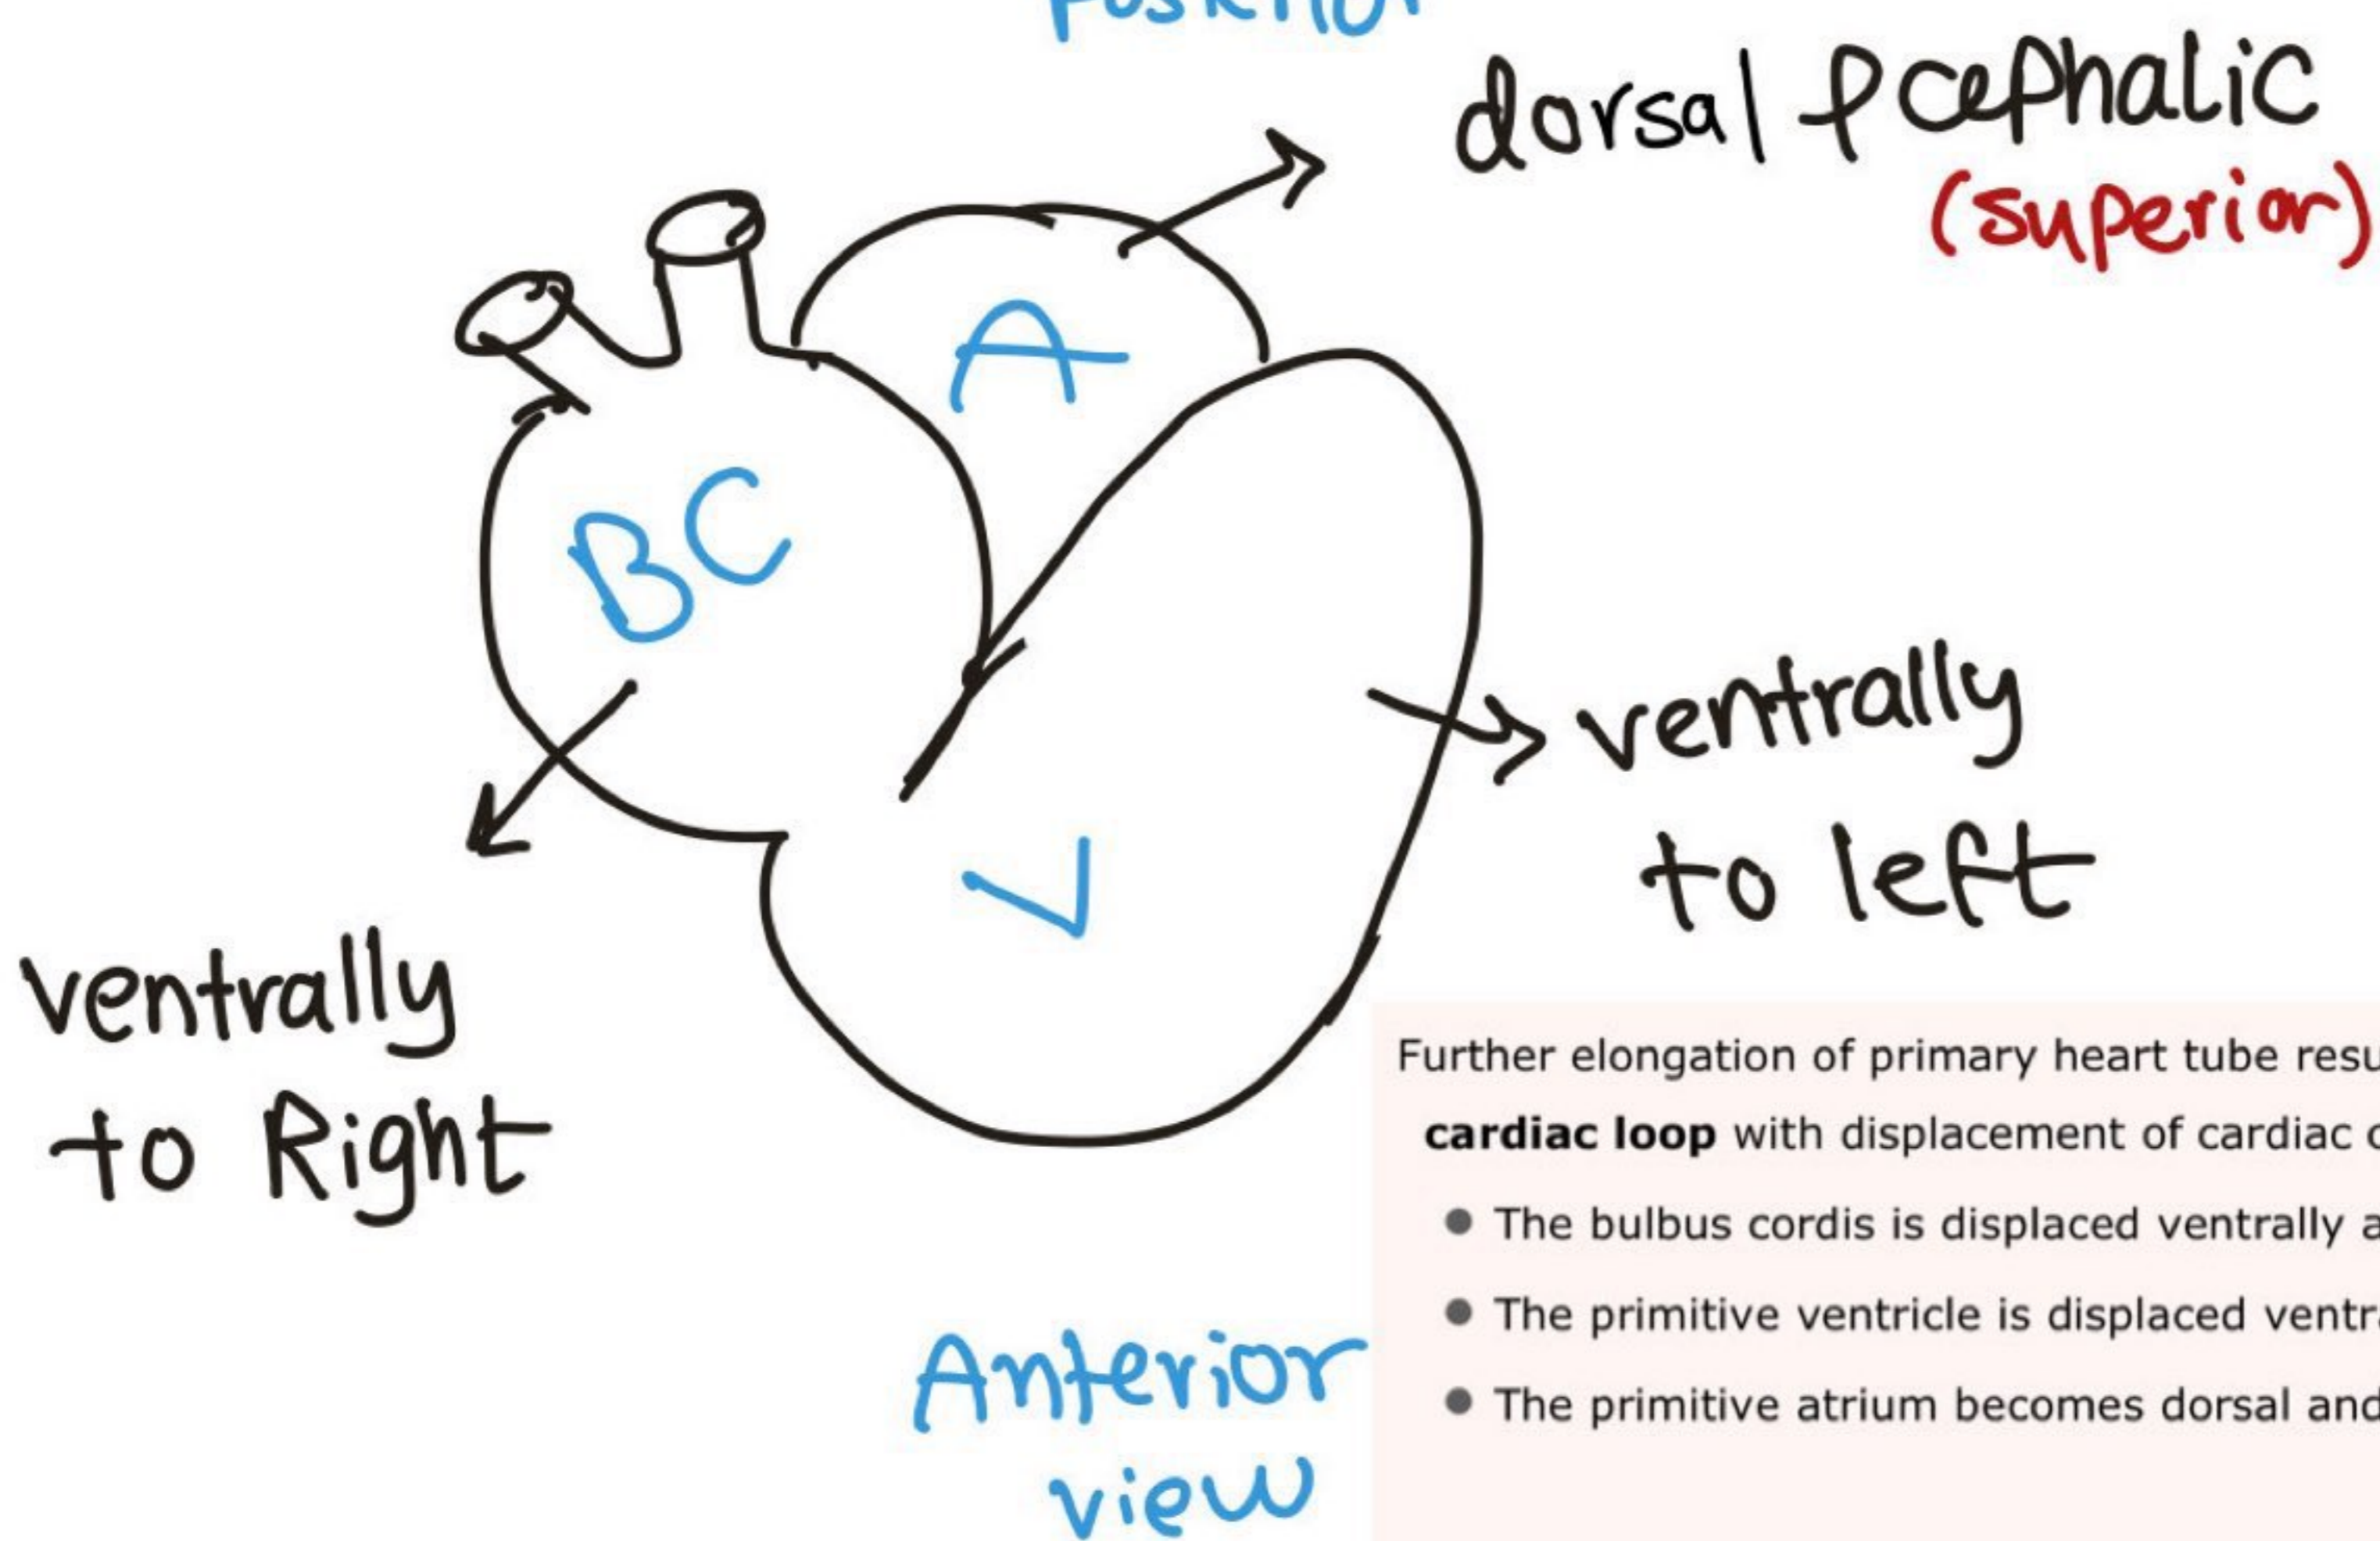 Posterior
dorsal & cephalic
(superior)
A
BC
V
ventrally
to left
ventrally
to Right
Further elongation of primary heart tube resu
cardiac loop with displacement of cardiac
• The bulbus cordis is displaced ventrally a
• The primitive ventricle is displaced ventr
• The primitive atrium becomes dorsal and
Anterior
view